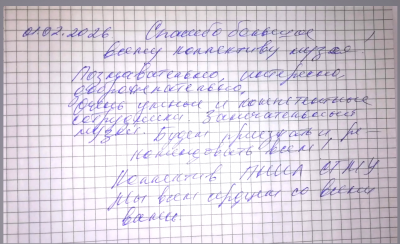 01.02.2026 Спасибо большое
всему коллективу музея!
Познавательно, интересно,
доброжелательно.
Очень умные и компетентные
сотрудники. Замечательный
музей. Будем приезжать и ре-
комендовать всем!
Коллектив
Мы всем сердцем со всеми
вами